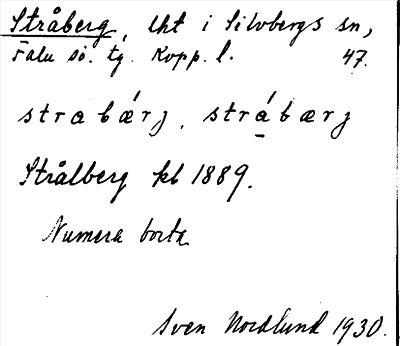 Stråberg, lht i Silvbergs sn,
Falu sö. tg. Kopp. l. 47.
strabǽrj, strábærj
Strålberg kb 1889.
Numera borta
Sven Nordlund 1930.